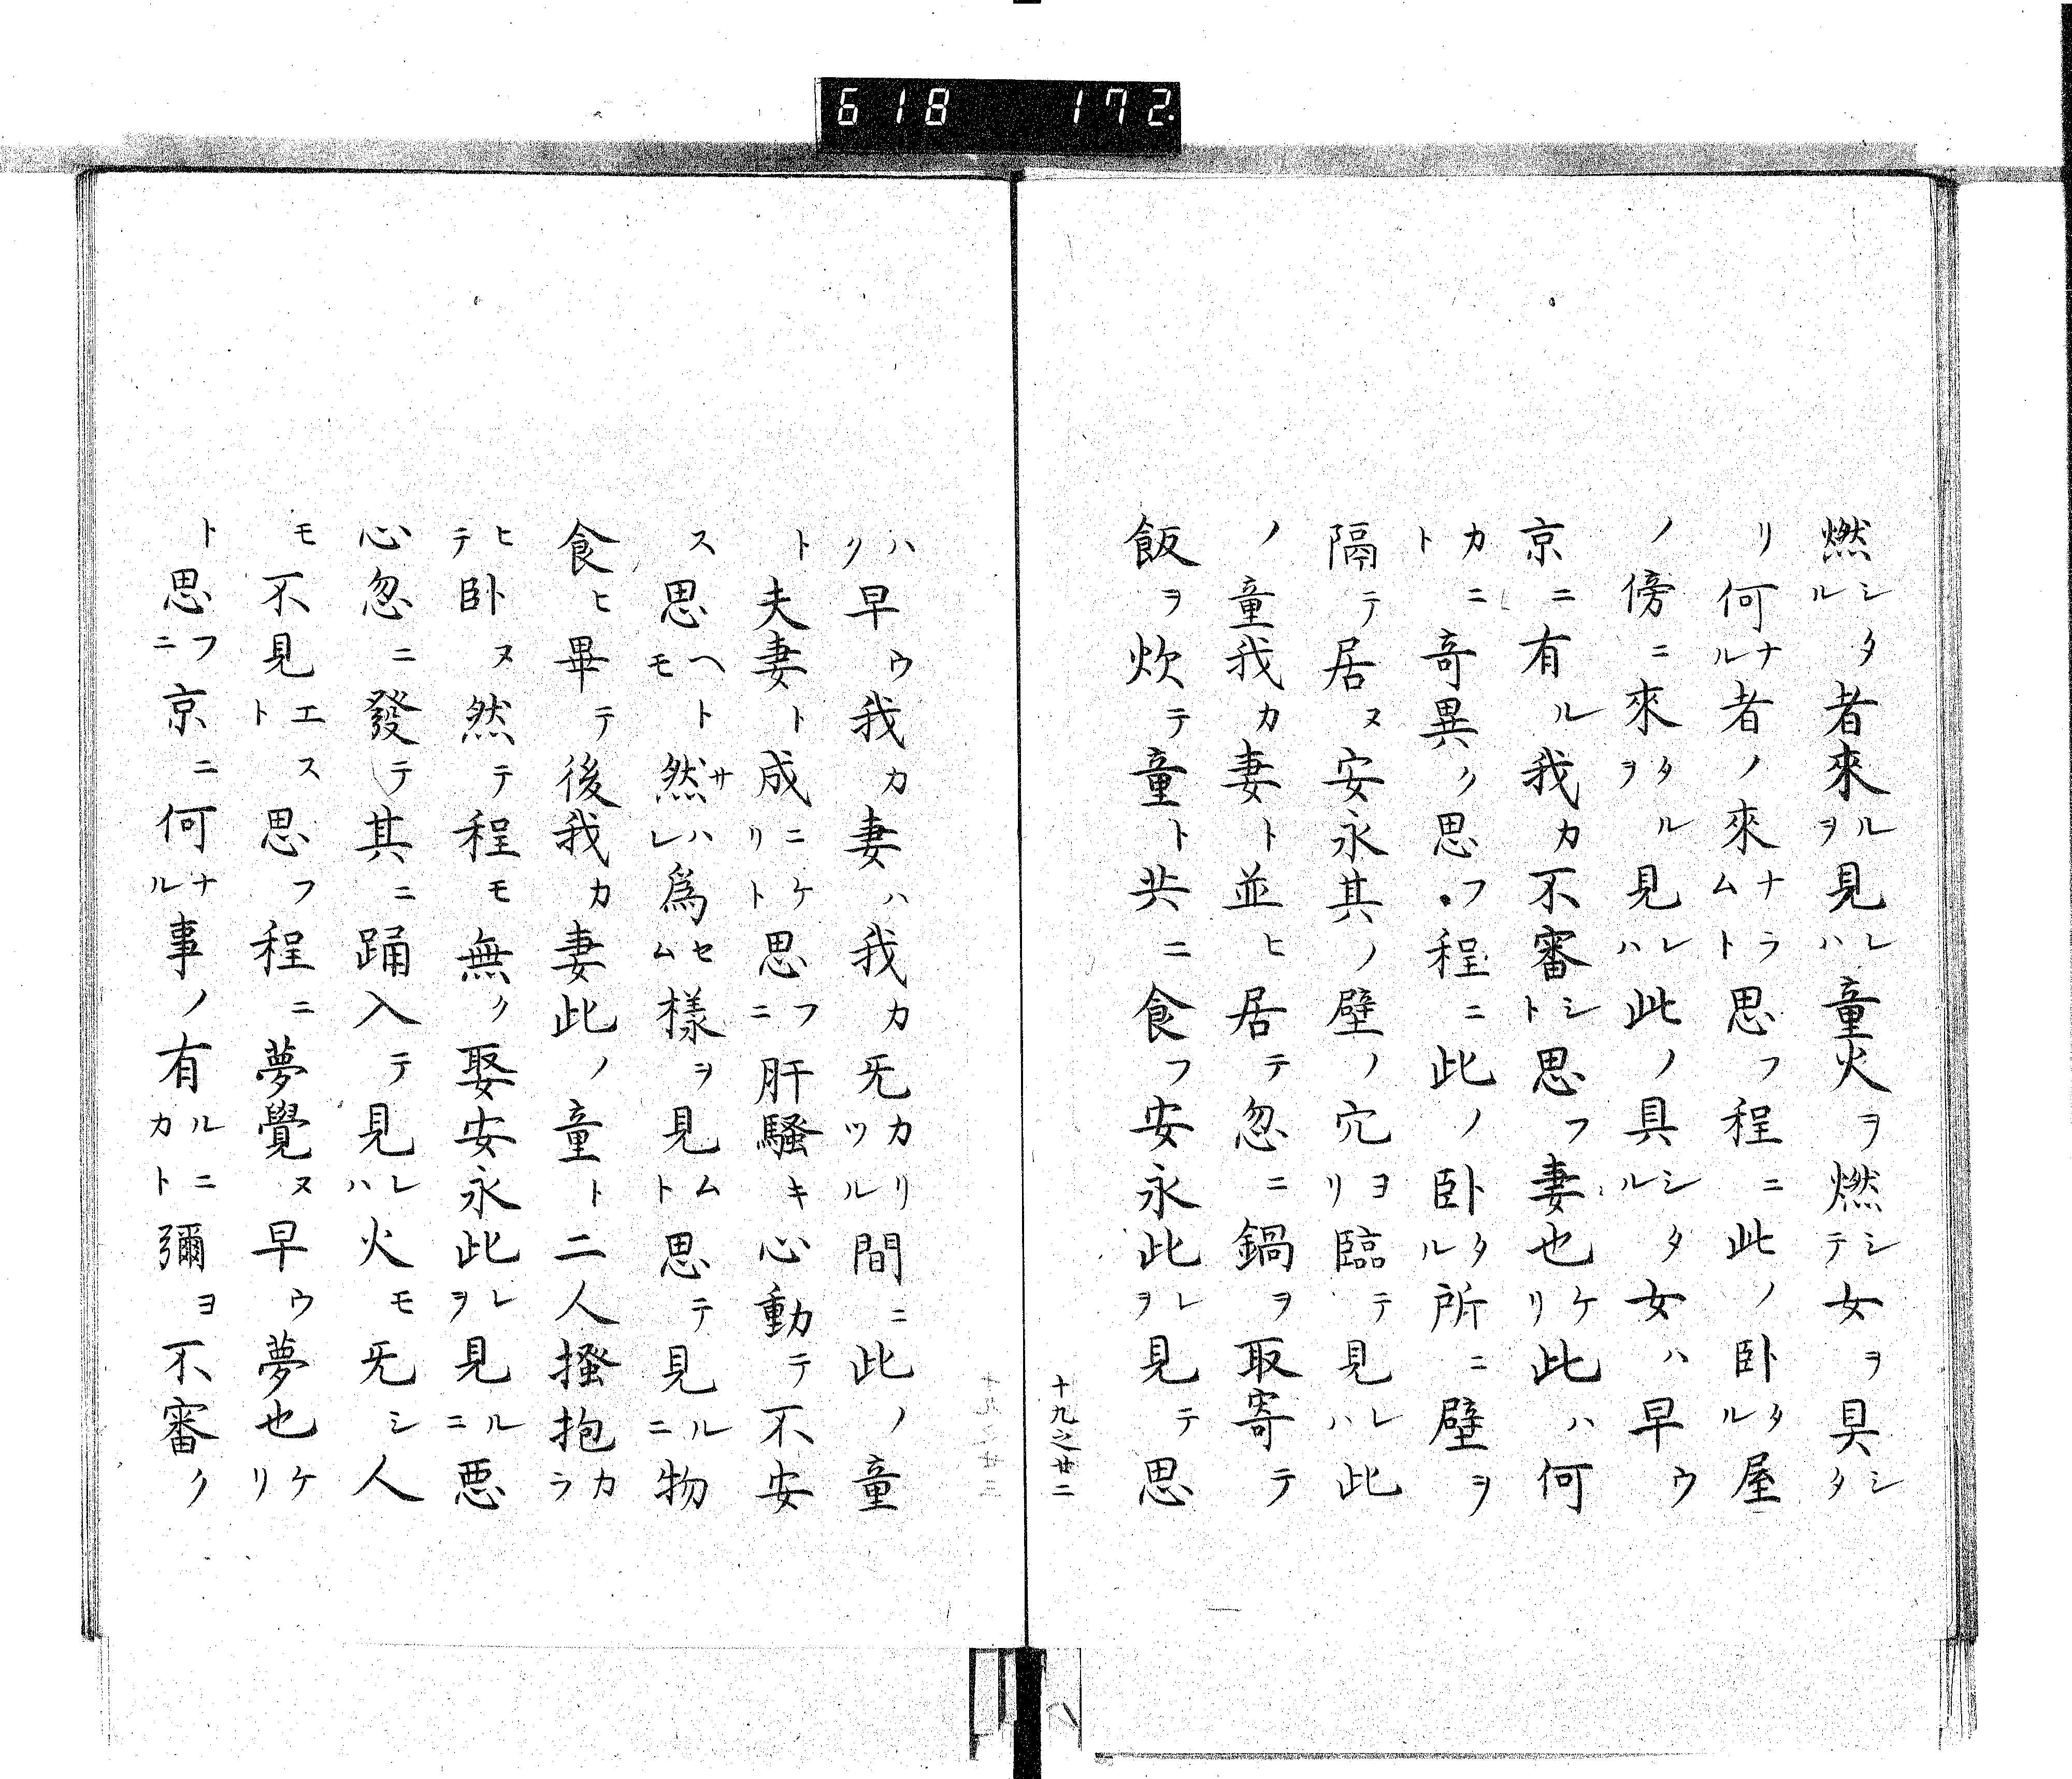 618 172
燃シタル者來ルヲ見レハ童火ヲ燃シテ女ヲ具シタ
リ何ナル者ノ來ナラムト思フ程ニ此ノ臥タル屋
ノ傍ニ來タルヲ見レハ此ノ具シタル女ハ早ウ
京ニ有ル我カ不審シト思フ妻也ケリ此ハ何
カニト奇異ク思フ程ニ此ノ臥タル所ニ壁ヲ
隔テ居ヌ安永其ノ壁ノ穴ヨリ臨テ見レハ此
ノ童我カ妻ト並ヒ居テ忽ニ鍋ヲ取寄テ
飯ヲ炊テ童ト共ニ食フ安永此レヲ見テ思
十九之廿二
ハク早ウ我カ妻ハ我カ旡カリツル間ニ此ノ童
ト夫妻ト成ニケリト思フニ肝騷キ心動テ不安
ス思ヘトモ然サハレ爲セム樣ヲ見ムト思テ見ルニ物
食ヒ畢テ後我カ妻此ノ童ト二人搔抱カラ
ヒテ臥ヌ然テ程モ無ク娶安永此レヲ見ルニ惡
心忽ニ發テ其ニ踊入テ見レハ火モ旡シ人
モ不見エスト思フ程ニ夢覺ヌ早ウ夢也ケリ
ト思フニ京ニ何ナル事ノ有ルニカト彌ヨ不審ク